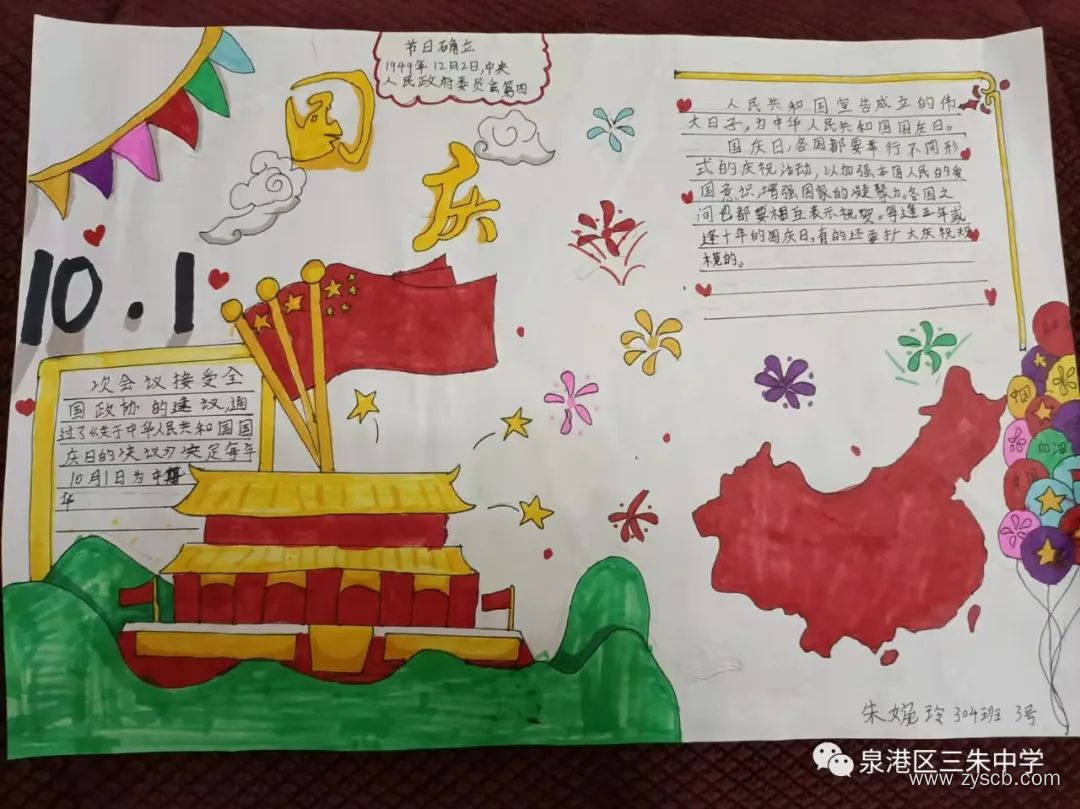 国
庆
10.1
节日确立
1949年12月2日,中央
人民政府委员会第四
次会议接受全
国政协的建议,通
过了《关于中华人民共和国国
庆日的决议》决定每年
10月1日为中
华
人民共和国宣告成立的伟
大日子,为中华人民共和国国庆日。
国庆日,各国都要举行不同形
式的庆祝活动,以加强本国人民的爱
国意识,增强国家的凝聚力。各国之
间也都要相互表示祝贺。每逢五年或
逢十年的国庆日,有的还要扩大庆祝规
模的。
中国
加油
中国
朱婉玲 304班 3号
泉港区三朱中学
www.zyscb.com